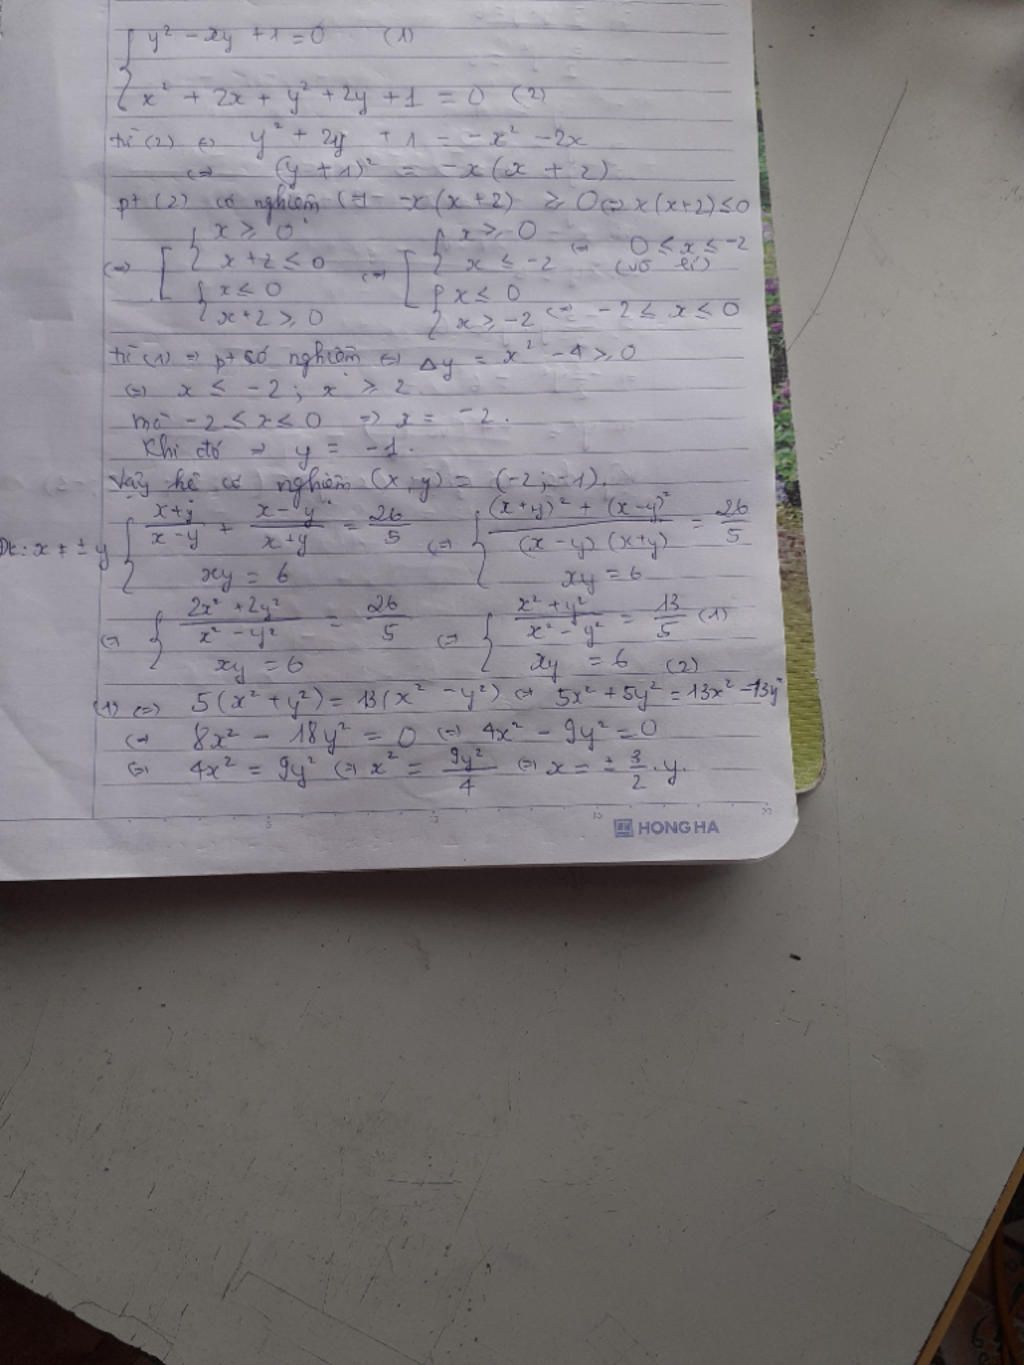 y² - xy + 1 = 0 (1)
x² + 2x + y² + 2y + 1 = 0 (2)
từ (2) ⇔ y² + 2y + 1 = -x² - 2x
⇔ (y + 1)² = -x(x + 2)
pt (2) có nghiệm ⇔ -x(x+2) ≥ 0 ⇔ x(x+2) ≤ 0
⇔ [ { x ≥ 0 ; x+2 ≤ 0 ⇔ [ { x ≥ 0 ; x ≤ -2 ⇔ 0 ≤ x ≤ -2 (vô lí)
{ x ≤ 0 ; x+2 ≥ 0 { x ≤ 0 ; x ≥ -2 ⇔ -2 ≤ x ≤ 0
từ (1) ⇒ pt có nghiệm ⇔ Δy = x² - 4 ≥ 0
⇔ x ≤ -2 ; x ≥ 2
mà -2 ≤ x ≤ 0 ⇒ x = -2.
Khi đó ⇒ y = -1.
Vậy hệ có nghiệm (x;y) = (-2;-1).
Đk: x ≠ ± y { (x+y)/(x-y) + (x-y)/(x+y) = 26/5 ⇔ { ((x+y)² + (x-y)²)/((x-y)(x+y)) = 26/5
xy = 6 xy = 6
⇔ { (2x² + 2y²)/(x² - y²) = 26/5 ⇔ { (x² + y²)/(x² - y²) = 13/5 (1)
xy = 6 xy = 6 (2)
(1) ⇔ 5(x² + y²) = 13(x² - y²) ⇔ 5x² + 5y² = 13x² - 13y²
⇔ 8x² - 18y² = 0 ⇔ 4x² - 9y² = 0
⇔ 4x² = 9y² ⇔ x² = 9y²/4 ⇔ x = ± 3/2 . y.
5 10 15 20
HONG HA